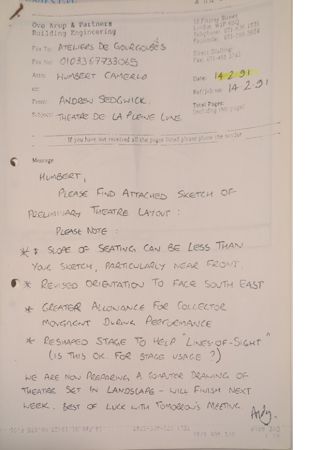 Ove Arup & Partners
Building Engineering
Fax To: ATELIERS DE GOURGOUBÈS
Fax No: 0103367733065
Attn: HUMBERT CAMERLO
cc:
From: ANDREW SEDGWICK.
Subject: THEATRE DE LA PLEINE LUNE
13 Fitzroy Street
London W1P 6BQ
Date: 14.2.91
14.2.91
Total Pages:
(including this page)
If you have not received all the pages listed please phone the sender
Message
HUMBERT,
PLEASE FIND ATTACHED SKETCH OF
PRELIMINARY THEATRE LAYOUT :
PLEASE NOTE :
* SLOPE OF SEATING CAN BE LESS THAN
YOUR SKETCH, PARTICULARLY NEAR FRONT.
* REVISED ORIENTATION TO FACE SOUTH EAST
* GREATER ALLOWANCE FOR COLLECTOR
MOVEMENT DURING PERFORMANCE
* RESHAPED STAGE TO HELP "LINES-OF-SIGHT"
(IS THIS OK. FOR STAGE USAGE ?)
WE ARE NOW PREPARING A COMPUTER DRAWING OF
THEATRE SET IN LANDSCAPE - WILL FINISH NEXT
WEEK. BEST OF LUCK WITH TOMORROW'S MEETING.
Andy.